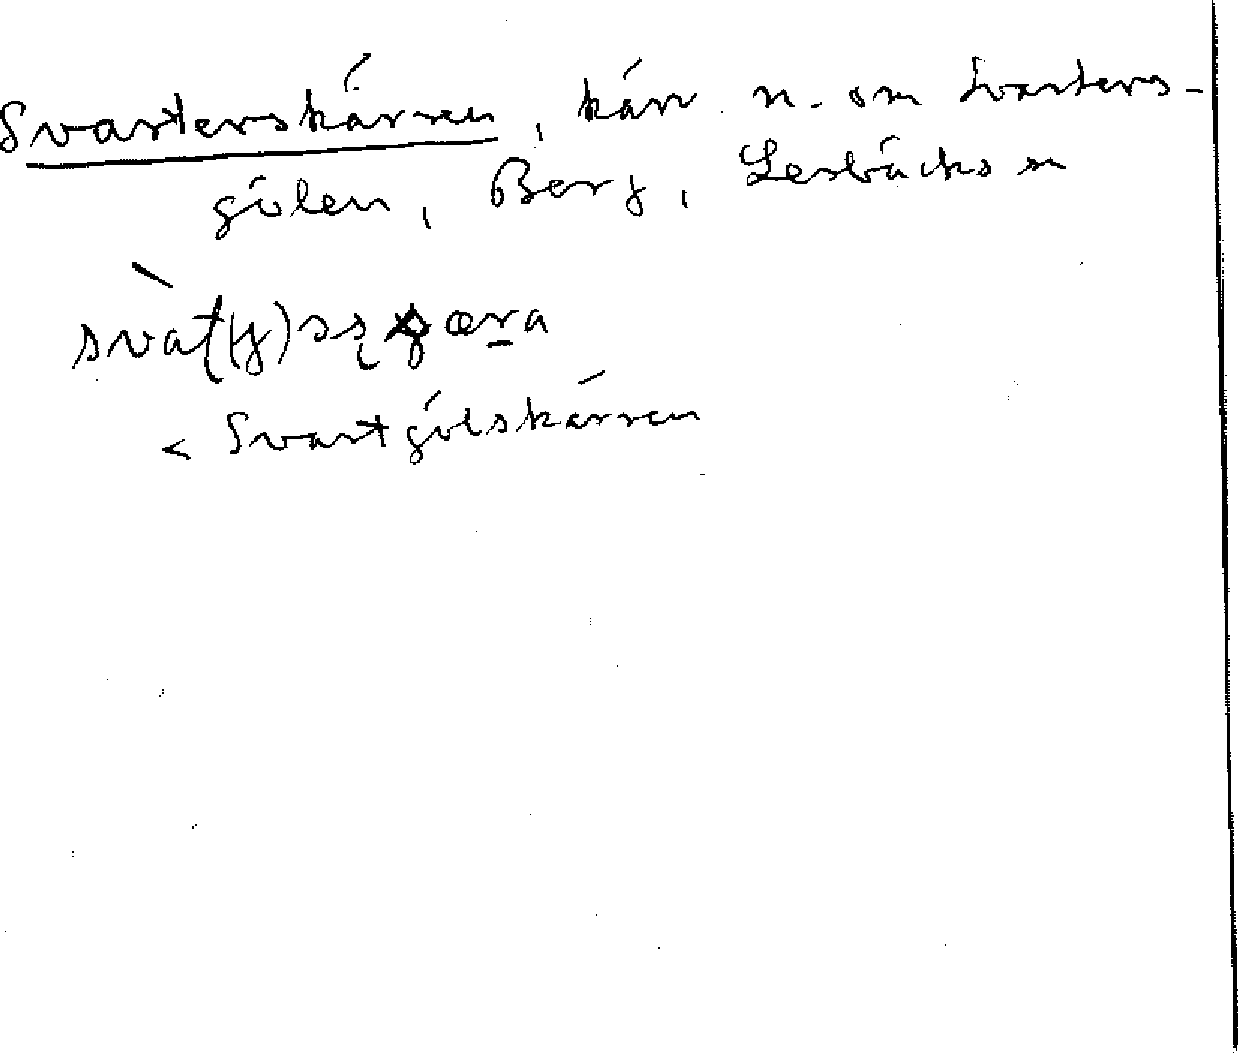 Svarterskärren, kärr n. om Svarters-
gölen, Berg, Lerbäcks sn
< Svartgölskärren